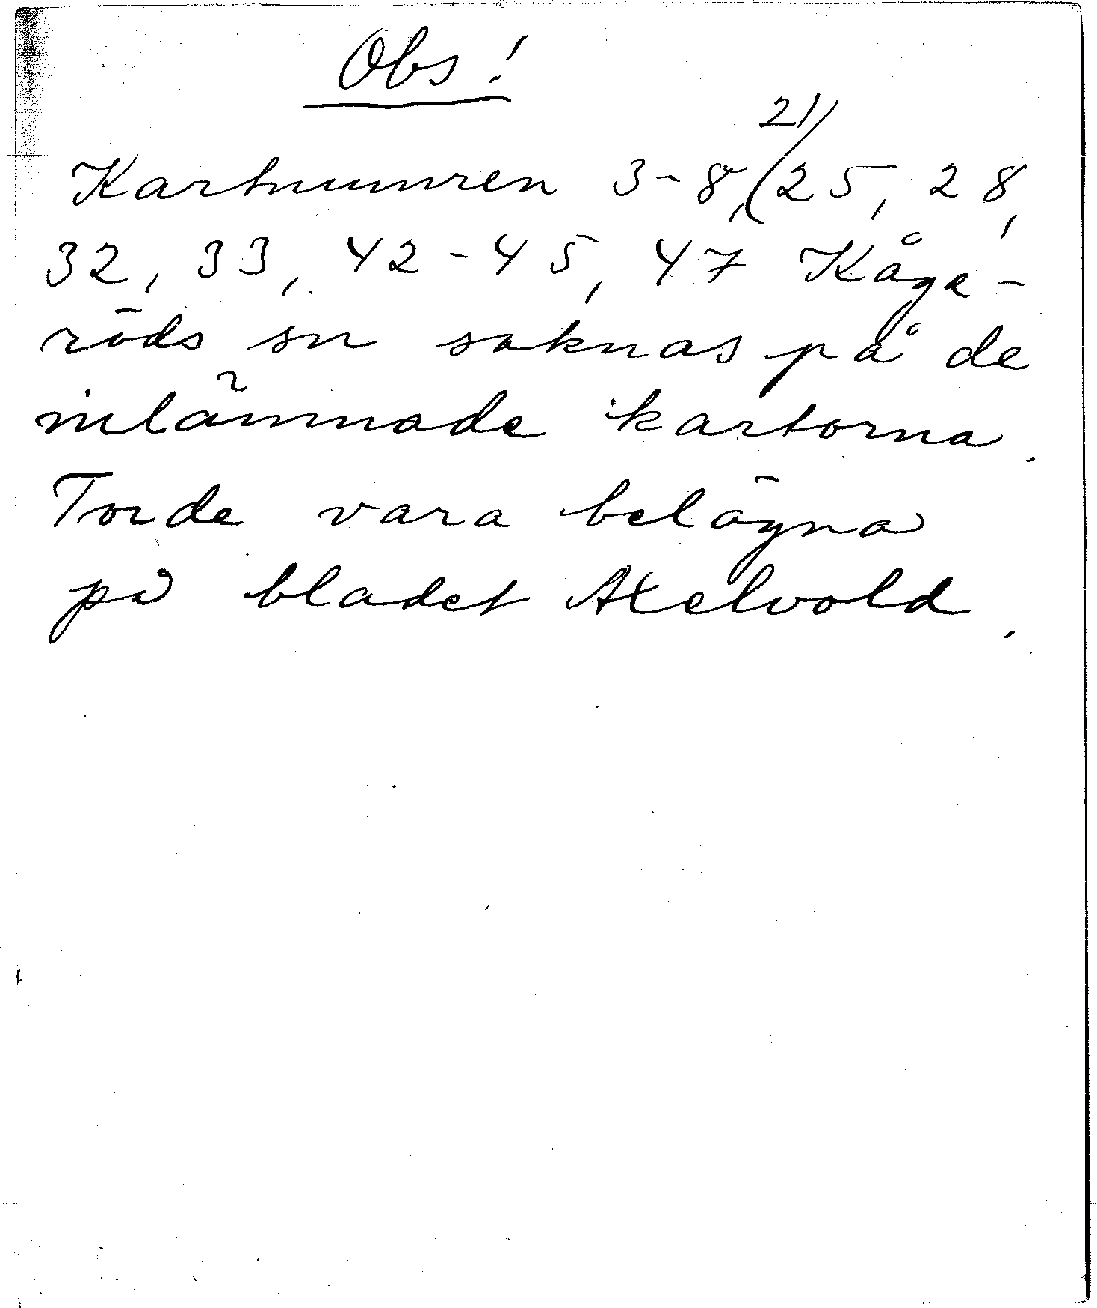 Obs!
Kartnumren 3-8, 21, 25, 28,
32, 33, 42-45, 47 Kåge-
röds sn saknas på de
inlämnade kartorna.
Torde vara belägna
på bladet Axelvold.